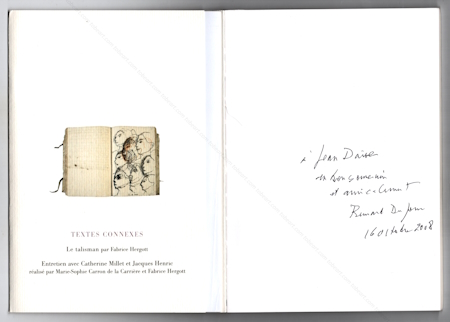 TEXTES CONNEXES
Le talisman par Fabrice Hergott
Entretien avec Catherine Millet et Jacques Henric
réalisé par Marie-Sophie Carron de la Carrière et Fabrice Hergott
à Jean
en bon souvenir
et amicalement
Bernard Dufour
16 Octobre 2008